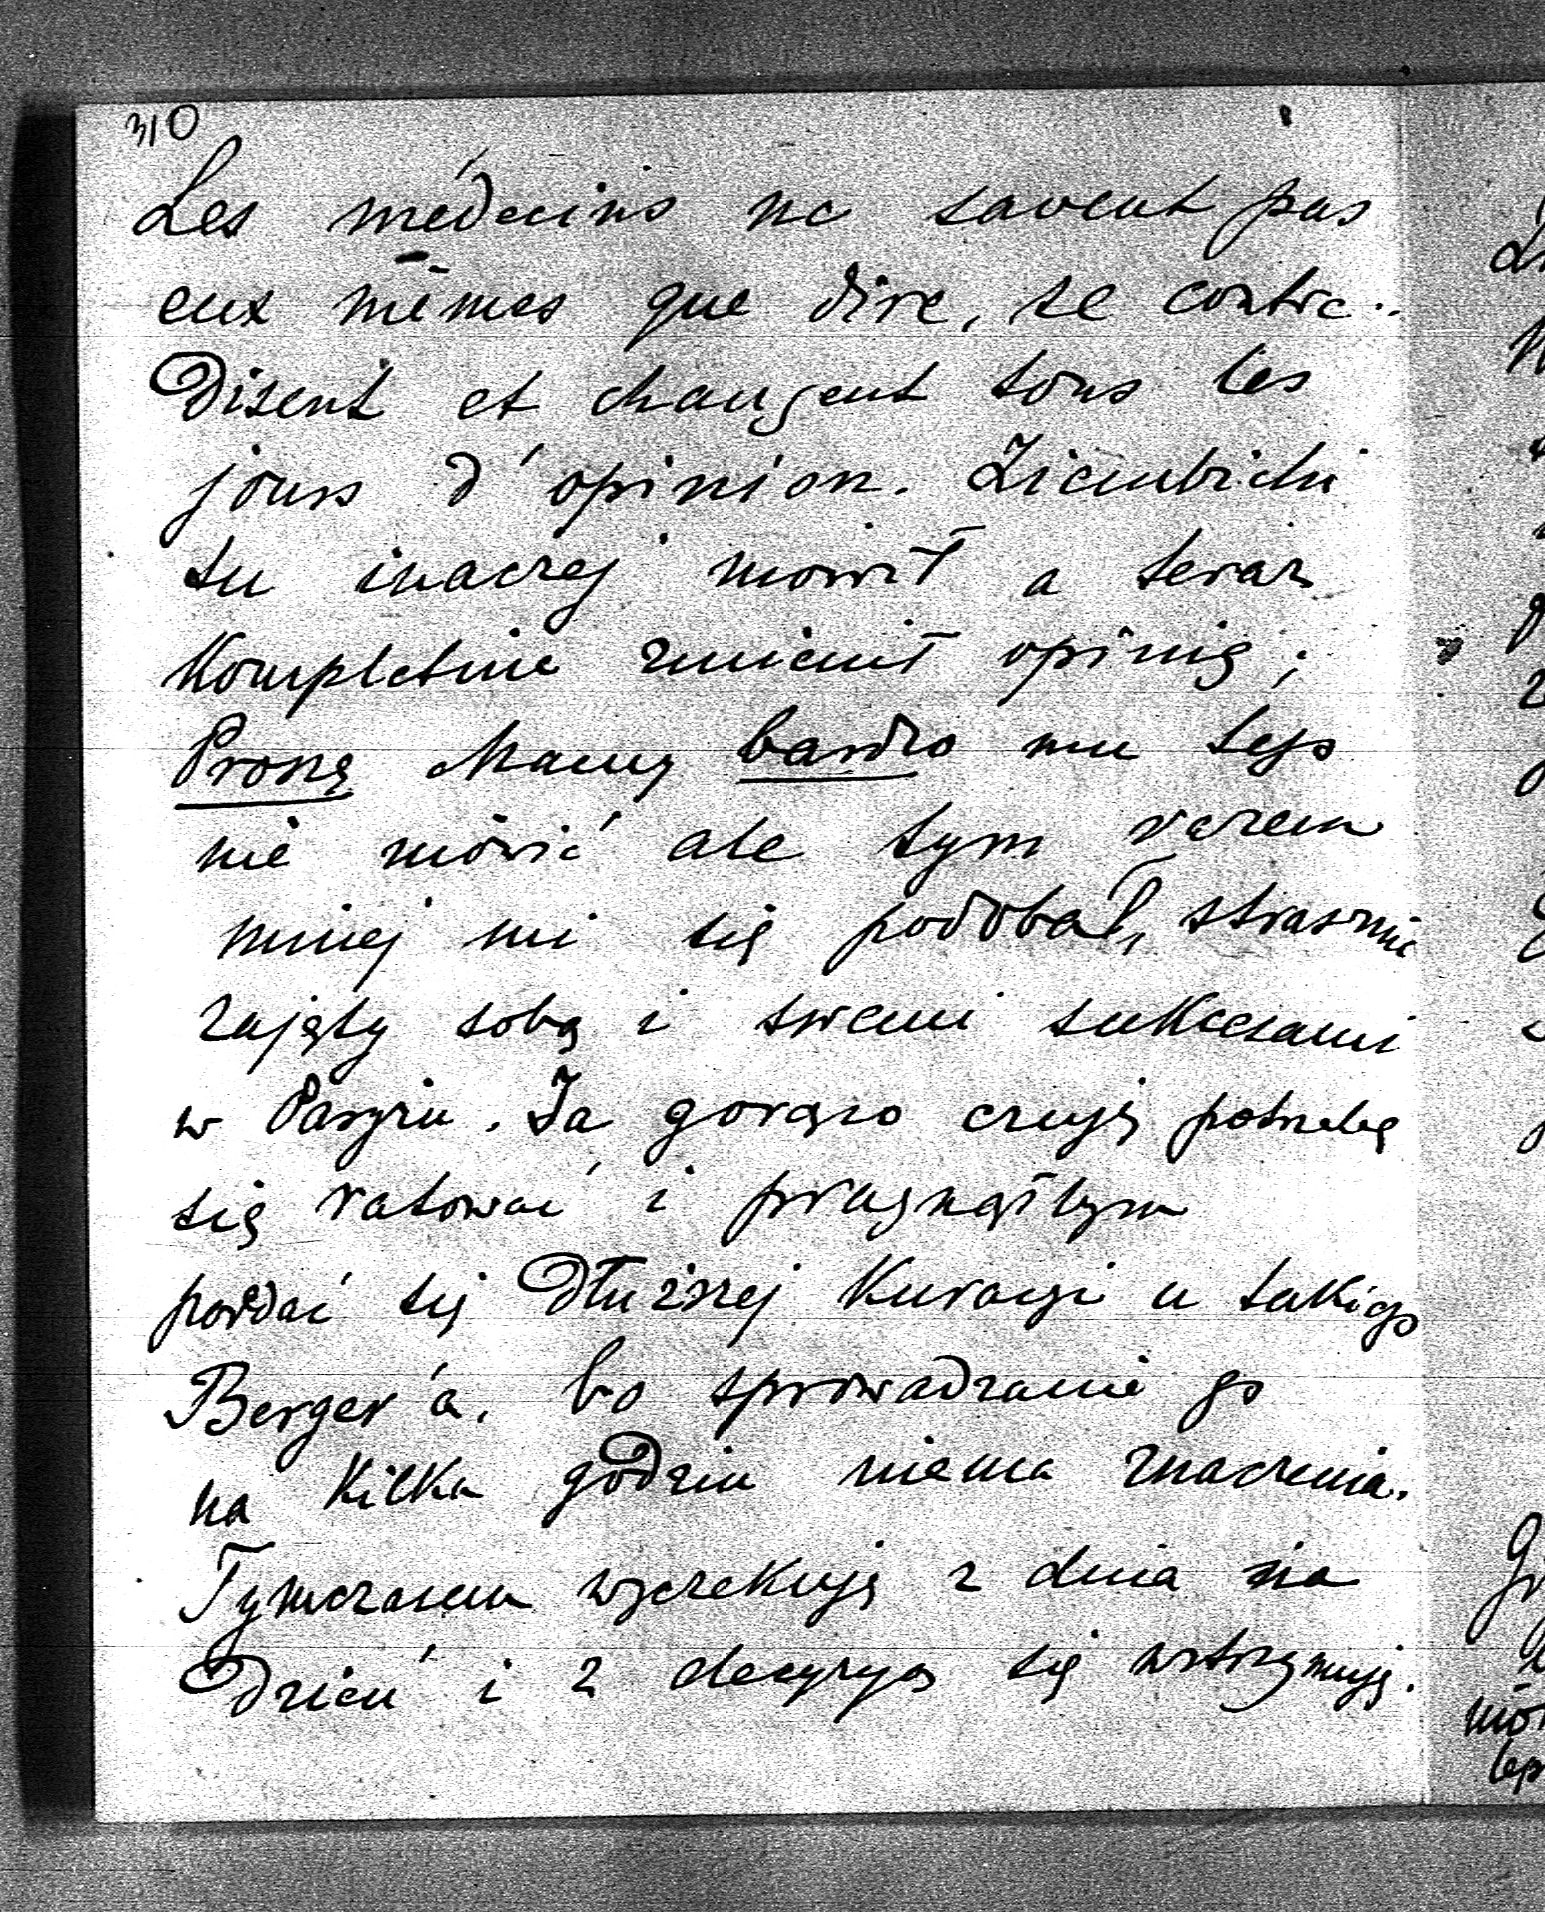 310
Les médecins ne savent pas
eux mêmes que dire, se contre-
disent et changent tous les
jours d'opinion. Ziembicki
tu inaczej mówił a teraz
kompletnie zmienił opinię;
Proszę Mamy bardzo mu tego
nie mówić ale tym razem
mniej mi się podobał, strasznie
zajęty sobą i swemi sukcesami
w Paryżu. Ja gorąco czuję potrzebę
się ratować i pragnąłbym
poddać się dłuższej kuracyi u takiego
Berger'a, bo sprowadzanie go
na kilka godzin niema znaczenia.
Tymczasem wyczekuję z dnia na
dzień i z decyzyą się wstrzymuję.